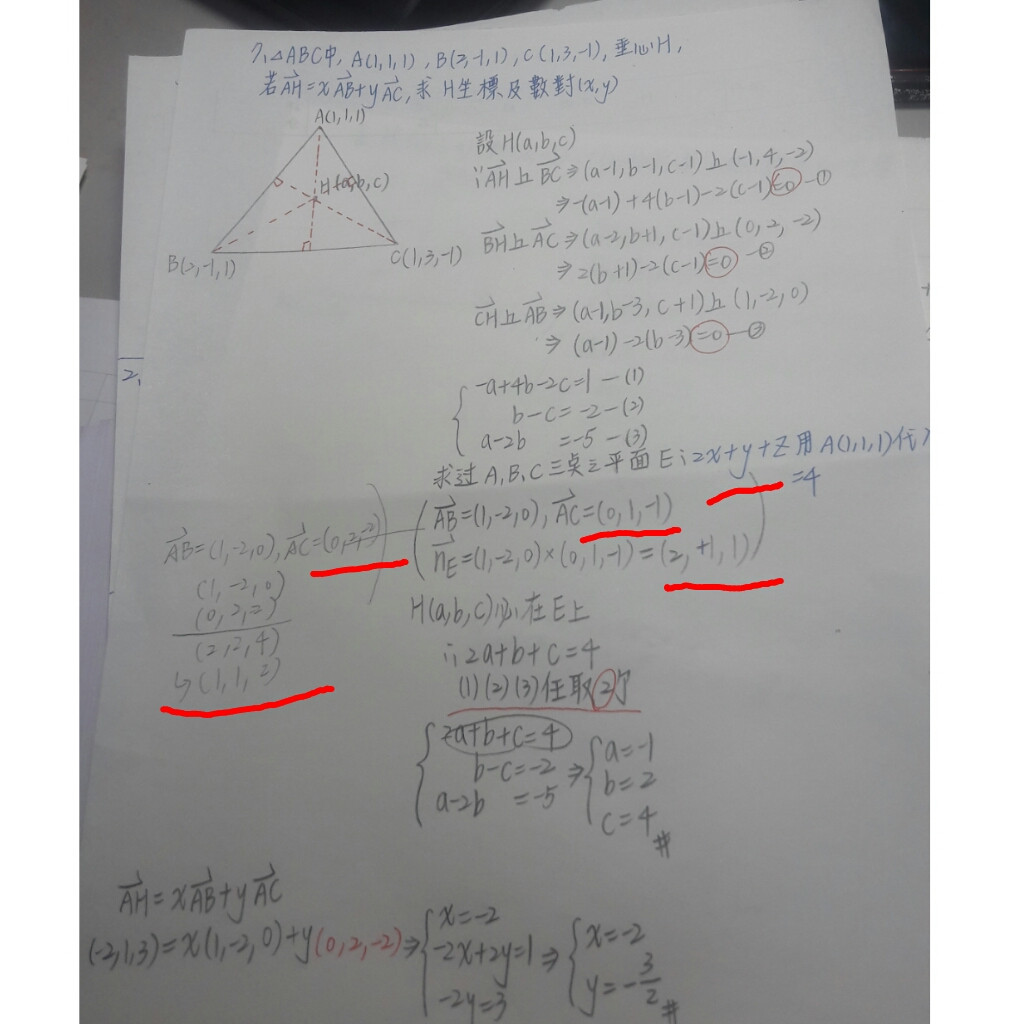 7. △ABC中, A(1,1,1), B(2,-1,1), C(1,3,-1), 垂心H,
若AH=xAB+yAC, 求 H坐標及數對(x,y)
A(1,1,1)
H(a,b,c)
B(2,-1,1)
C(1,3,-1)
設H(a,b,c)
∵AH⊥BC⇒(a-1,b-1,c-1)⊥(-1,4,-2)
⇒-(a-1)+4(b-1)-2(c-1)=0-①
BH⊥AC⇒(a-2,b+1,c-1)⊥(0,2,-2)
⇒2(b+1)-2(c-1)=0-②
CH⊥AB⇒(a-1,b-3,c+1)⊥(1,-2,0)
⇒(a-1)-2(b-3)=0-③
-a+4b-2c=1-(1)
b-c=-2-(2)
a-2b=-5-(3)
求过A,B,C三点之平面E:2x+y+z用A(1,1,1)代入
=4
AB=(1,-2,0), AC=(0,1,-1)
nE=(1,-2,0)×(0,1,-1)=(2,+1,1)
AB=(1,-2,0), AC=(0,2,-2)
(1,-2,0)
(0,2,=)
(2,2,4)
↳(1,1,2)
H(a,b,c)必在E上
∴2a+b+c=4
(1)(2)(3)任取2个
2a+b+c=4
b-c=-2
a-2b=-5
⇒
a=-1
b=2
c=4#
AH=xAB+yAC
(-2,1,3)=x(1,-2,0)+y(0,2,-2)⇒
x=-2
-2x+2y=1
-2y=3
⇒
x=-2
y=-3/2#
2,